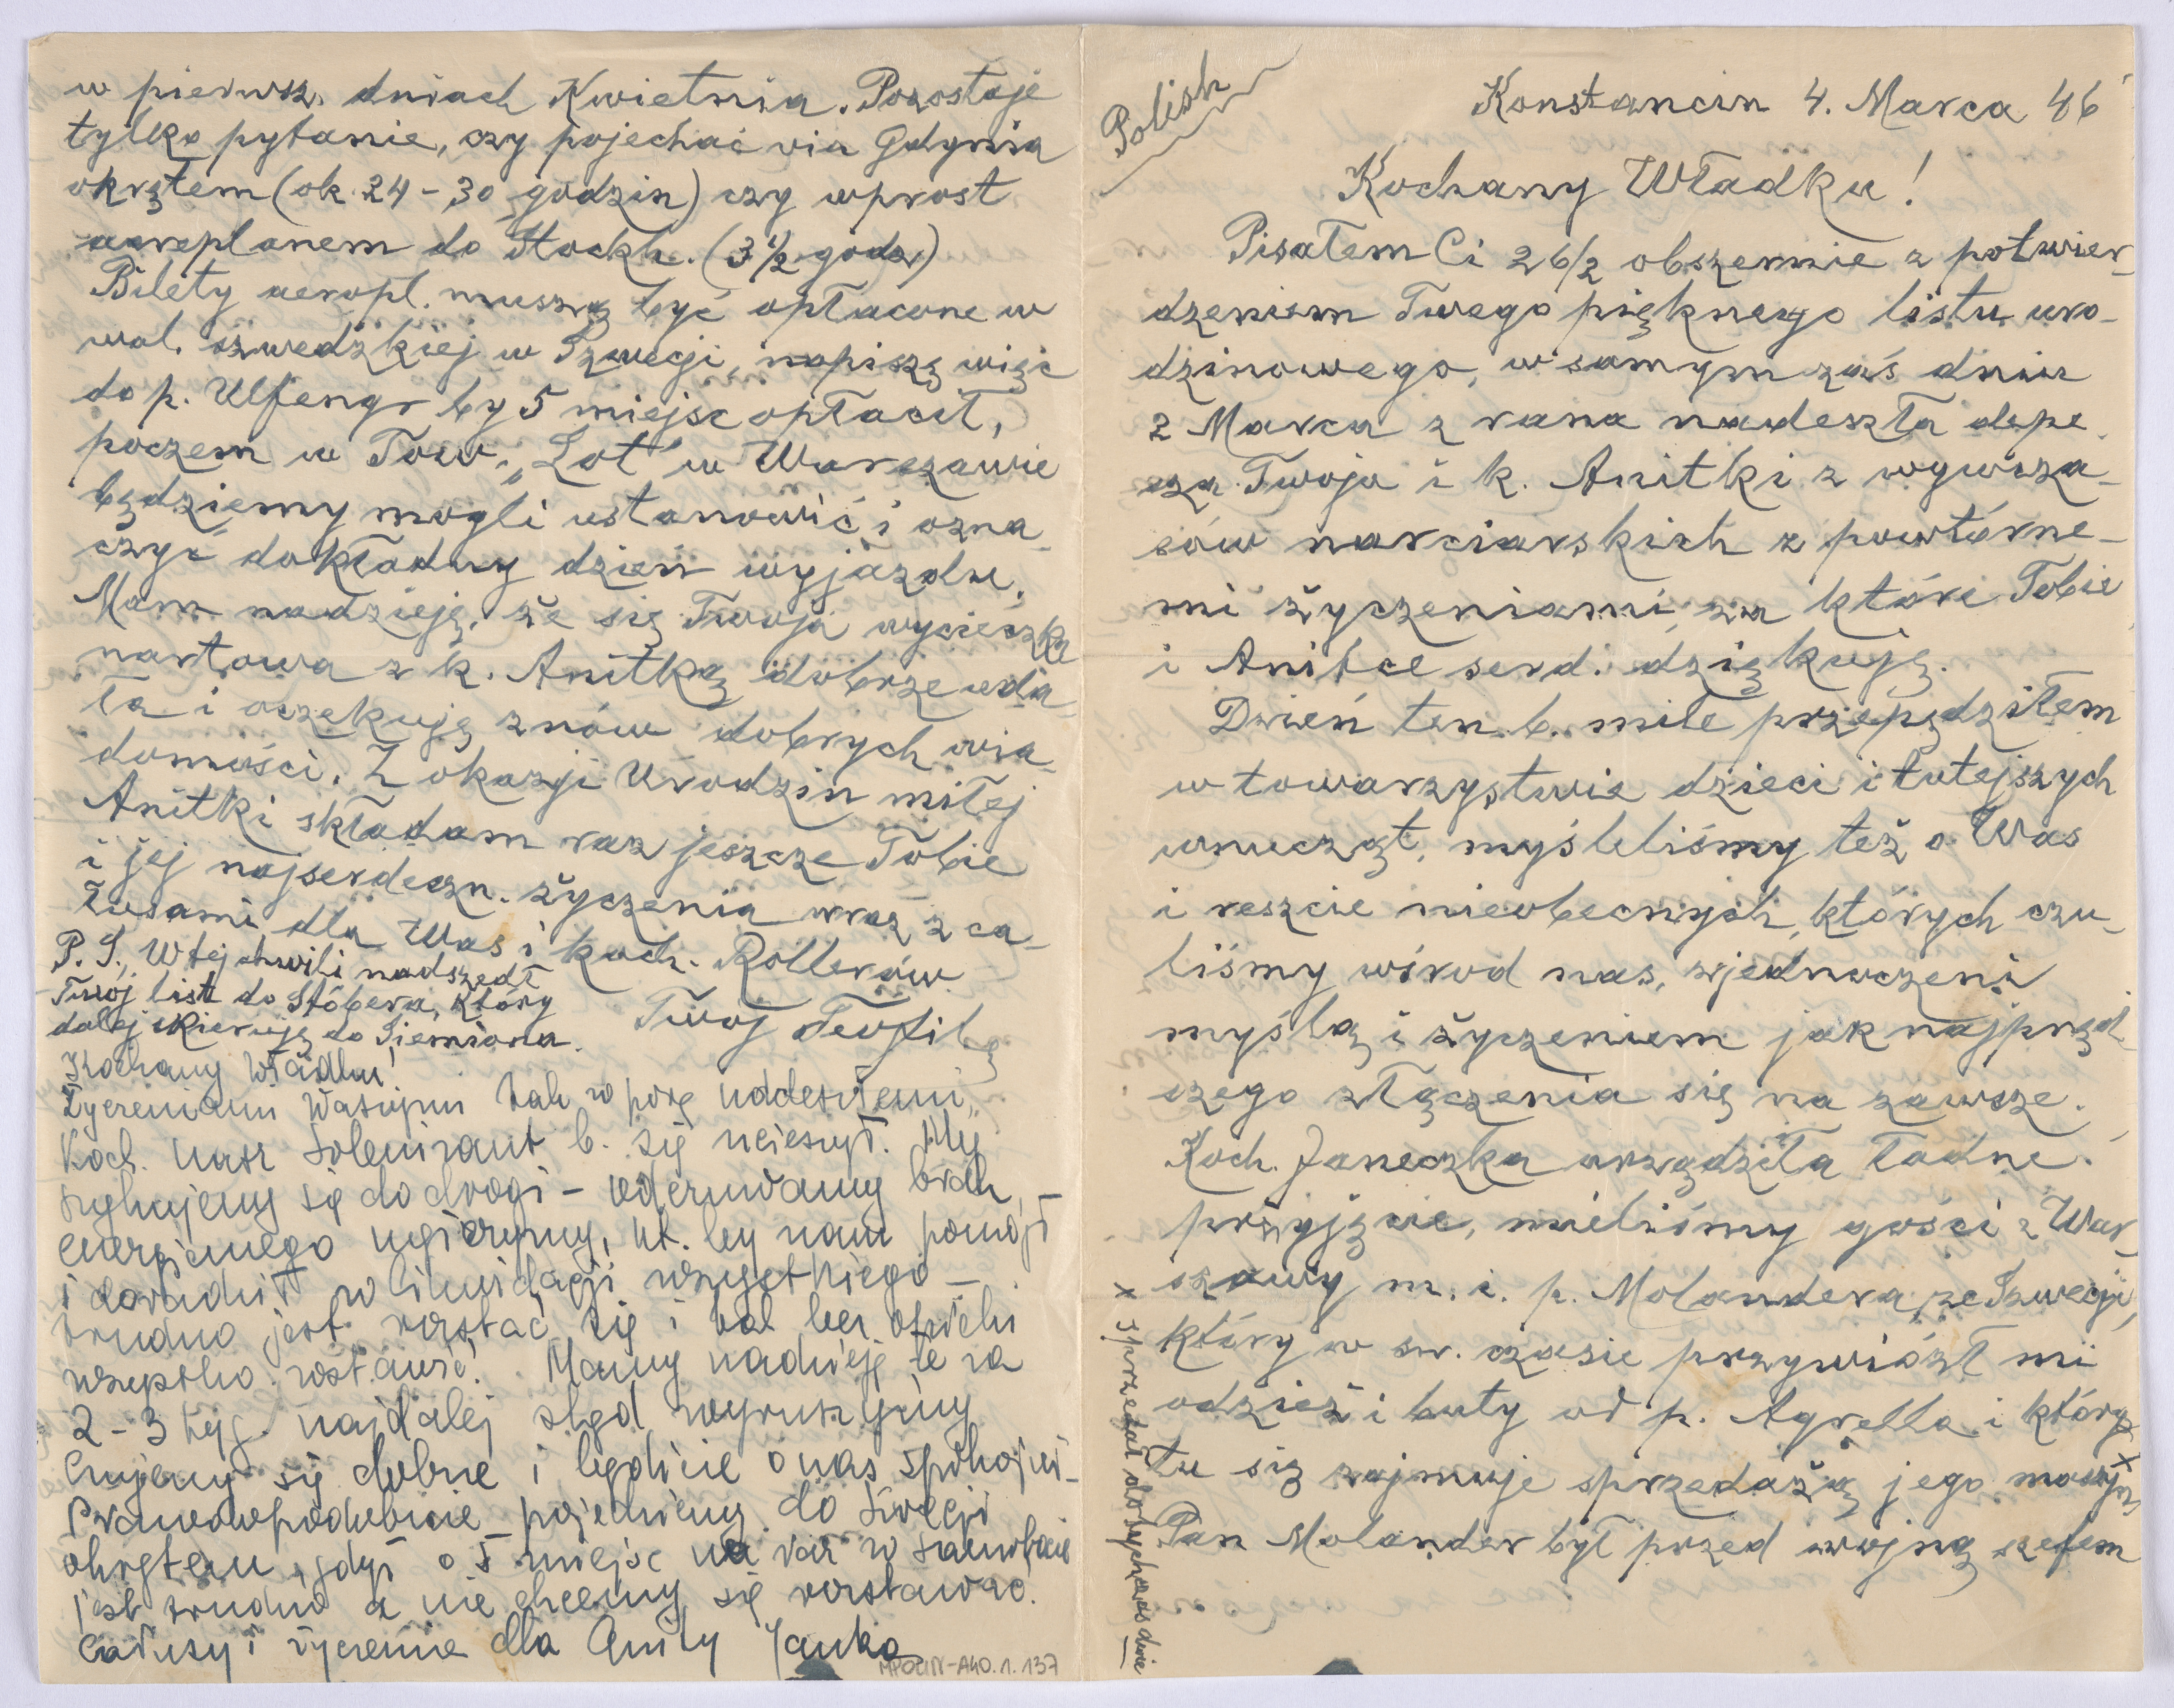 Polish
Konstancin 4. Marca 46
Kochany Władku!
Pisałem Ci 26/2 obszernie z potwier-
dzeniem Twego pięknego listu uro-
dzinowego, w samym zaś dniu
2 Marca z rana nadeszła depe-
sza Twoja i k. Anitki z wywcza-
sów narciarskich z powtórne-
mi życzeniami, za które Tobie
i Anitce serd. dziękuję.
Dzień ten b. mile przepędziłem
w towarzystwie dzieci i tutejszych
wnucząt, myśleliśmy też o Was
i reszcie nieobecnych, których czu-
liśmy wśród nas, zjednoczeni
myślą i życzeniem jak najpręd-
szego złączenia się na zawsze.
Koch. Janeczka urządziła ładne
przyjęcie, mieliśmy gości z War-
szawy m. i. p. Molandera ze Szwecji,
który w sw. czasie przywiózł mi
odzież i buty od p. Agrella i który
tu się zajmuje sprzedażą jego maszyn x
Pan Molander był przed wojną szefem
x sprzedał dotychczas dwie
w pierwsz. dniach Kwietnia. Pozostaje
tylko pytanie, czy pojechać via Gdynia
okrętem (ok. 24 - 30 godzin) czy wprost
aeroplanem do Stockh. (3 1/2 godz.)
Bilety aeropl. muszą być opłacone w
wal. szwedzkiej w Szwecji, napiszę więc
do p. Ulfengr by 5 miejsc opłacił,
poczem w Tow. "Lot" w Warszawie
będziemy mogli ustanowić i ozna-
czyć dokładny dzień wyjazdu.
Mam nadzieję, że się Twoja wycieczka
nartowa z k. Anitką dobrze uda-
ła i oczekuję znów dobrych wia-
domości. Z okazji Urodzin miłej
Anitki składam raz jeszcze Tobie
i jej najserdeczn. życzenia wraz z ca-
łusami dla Was i koch. Röllerów
Twój Teofil
P. S. W tej chwili nadszedł
Twój list do Stöbera, który
dalej skieruję do Siemiona.
Kochany Władku!
Życzeniami Waszymi tak w porę nadesłanemi,
Koch. nasz Solenizant b. się ucieszył. My
szykujemy się do drogi - odczuwamy brak
energicznego mężczyzny, kt. by nam pomógł
i doradził w likwidacji wszystkiego -
trudno jest rozstać się i tak bez opieki
wszystko zostawić! Mamy nadzieję że za
2 - 3 tyg. najdalej stąd wyruszymy
Czujemy się dobrze i bądźcie o nas spokojni -
Prawdopodobnie pojedziemy do Szwecji
okrętem, gdyż o 5 miejsc na raz w samolocie
jest trudno a nie chcemy się rozstawać.
Całusy i życzenia dla Anity Janka
MPOLIN-A40.1.137